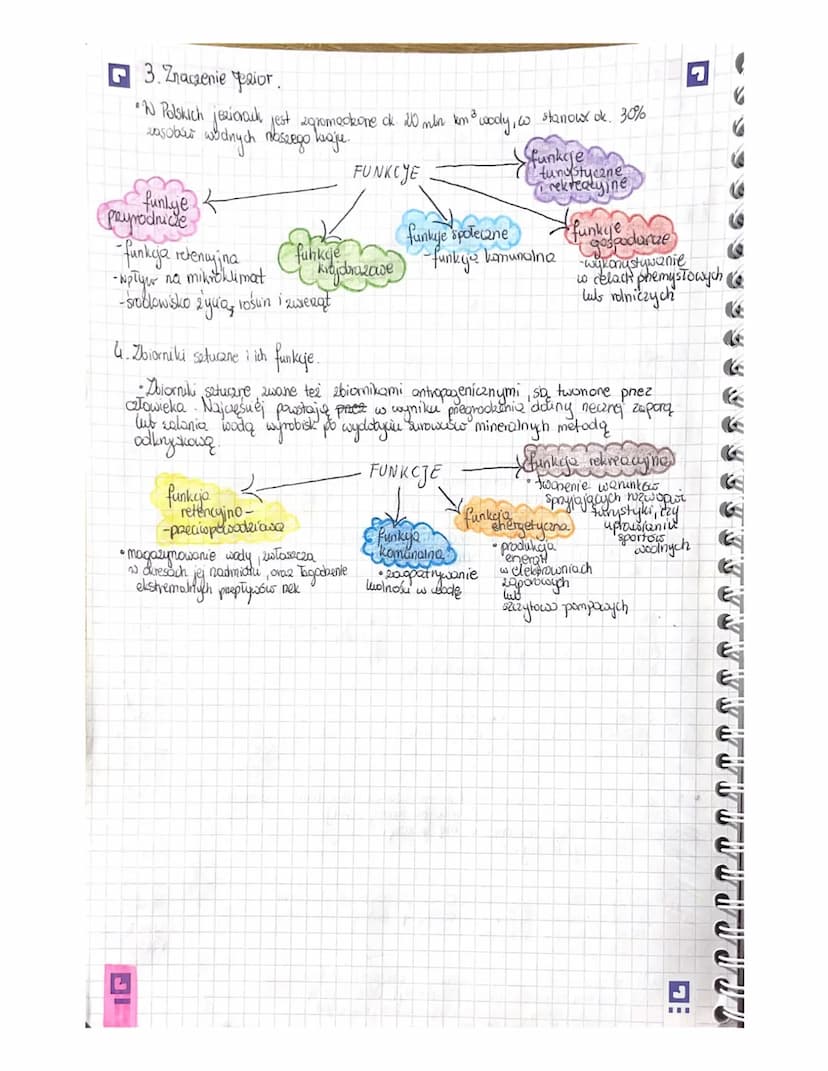 3. Znaczenie jezior.
• W Polskich jeziorach jest zgromadzone ok. 20 mln km³ wody, co stanowi ok. 30%
zasobów wodnych naszego kraju.
FUNKCJE
funkcje
turystyczne
i rekreacyjne
funkcje
przyrodnicze
- funkcja retencyjna
- wpływ na mikroklimat
- środowisko życia roślin i zwierząt
funkcje
krajobrazowe
funkcje społeczne
- funkcja komunalna
funkcje
gospodarcze
- wykorzystywanie
w celach przemysłowych
lub rolniczych
4. Zbiorniki sztuczne i ich funkcje.
• Zbiorniki sztuczne zwane też zbiornikami antropogenicznymi, są tworzone przez
człowieka. Najczęściej powstają przez w wyniku przegrodzenia doliny rzecznej zaporą
lub zalania wodą wyrobisk po wydobyciu surowców mineralnych metodą
odkrywkową.
FUNKCJE
funkcja rekreacyjna
• tworzenie warunków
sprzyjających rozwojowi
turystyki, czy
uprawianiu
sportów
wodnych
funkcja
retencyjno-
-przeciwpowodziowa
• magazynowanie wody, zwłaszcza
w okresach jej nadmiaru, oraz łagodzenie
ekstremalnych przepływów rzek
funkcja
komunalna
• zaopatrywanie
ludności w wodę
funkcja
energetyczna
• produkcja
energii
w elektrowniach
zaporowych
lub
szczytowo pompowych